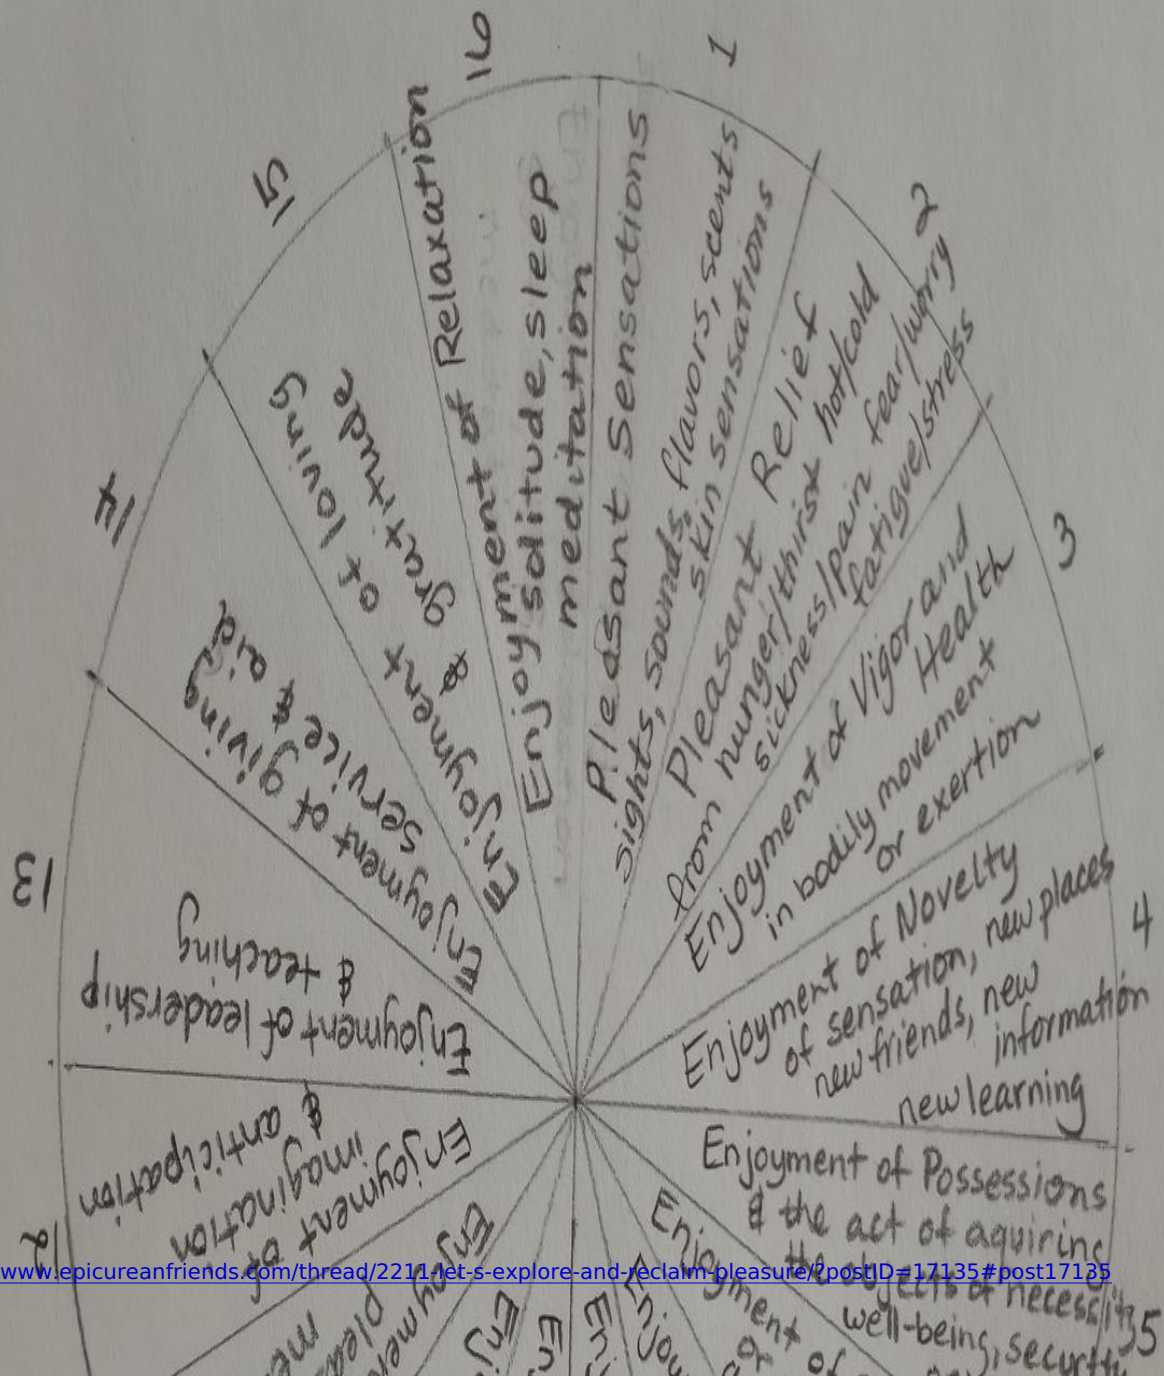 1
Pleasant Sensations
sights, sounds, flavors, scents
skin sensations
2
Pleasant Relief
from hunger/thirst hot/cold
sickness/pain fear/worry
fatigue/stress
3
Enjoyment of Vigor and
Health
in bodily movement
or exertion
4
Enjoyment of Novelty
of sensation, new places
new friends, new
information
new learning
5
Enjoyment of Possessions
& the act of aquiring
the objects of necessity
well-being, security
Enjoyment of
or
Enjoy
Enj
En
Enj
Enjoymen
pleas
me
12
Enjoyment of
imagination
& anticipation
13
Enjoyment of leadership
& teaching
14
Enjoyment of giving
service & aid
15
Enjoyment of loving
& gratitude
16
Enjoyment of Relaxation
solitude, sleep
meditation
www.epicureanfriends.com/thread/2211-let-s-explore-and-reclaim-pleasure/?postID=17135#post17135